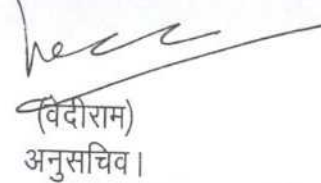 (वेदीराम)
अनुसचिव।